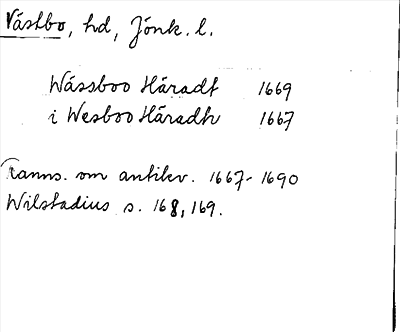 Västbo, hd, Jönk. l.
Wässboo Häradt 1669
i Wesboo Häradh 1667
Ranns. om antikv. 1667-1690
Wilstadius s. 168, 169.